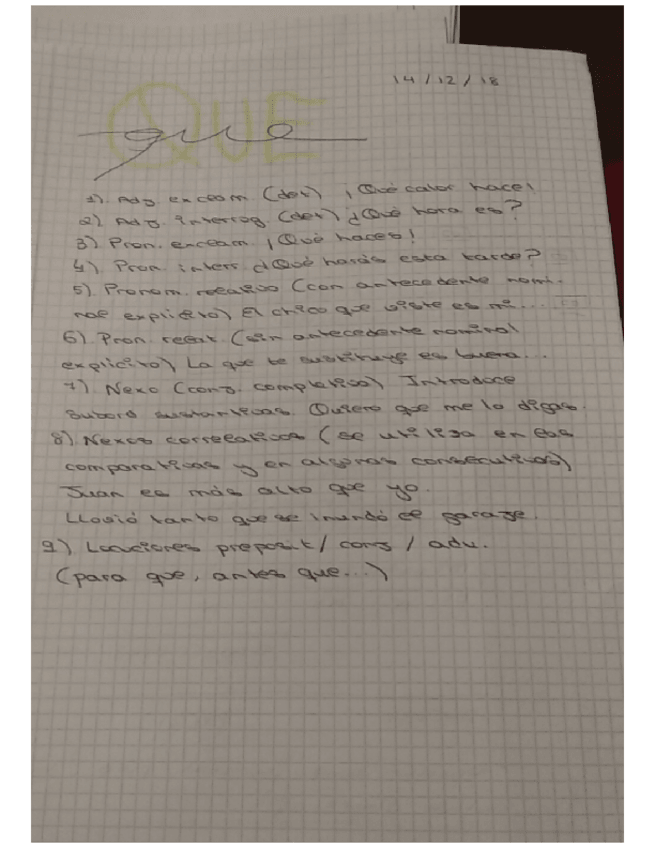 14/12/18
QUE
que
1). Adj. exclam (det) ¡Qué calor hace!
2) Adj. interrog. (det) ¿Qué hora es?
3) Pron. exclam ¡Qué haces!
4). Pron. inters. ¿Qué harás esta tarde?
5). Pronom. relativo (con antecedente nomi-
nal explícito) El chico que viste es mi...
6). Pron. relat. (sin antecedente nominal
explícito) La que te sustituye es buena...
7). Nexo (conj. completiva) Introduce
subord sustantivas. Quiero que me lo digas.
8). Nexos correlativos (se utiliza en las
comparativas y en algunas consecutivas)
Juan es más alto que yo.
Llovió tanto que se inundó el garaje.
9) Locuciones preposit/conj/adv.
(para que, antes que...)